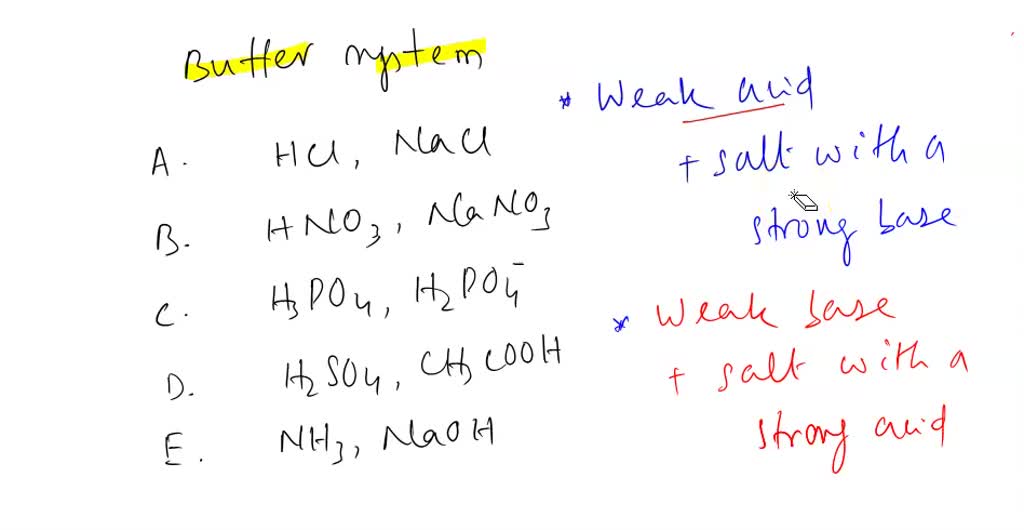 Buffer system
A. HCl, NaCl
B. HNO3, NaNO3
C. H3PO4, H2PO4⁻
D. H2SO4, CH3COOH
E. NH3, NaOH
* Weak acid
+ salt with a
strong base
* Weak base
+ salt with a
strong acid